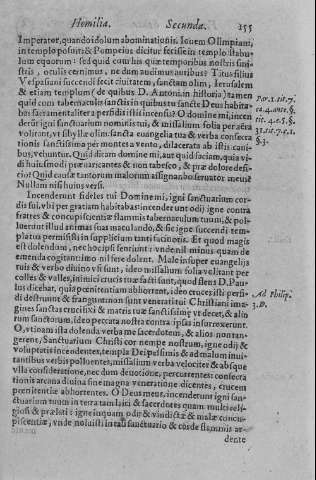 Homiliæ Secundæ. 255
Imperator, quando idolum abominationis, Iouem Olimpium,
in templo posuit: & Pompeius dicitur fecisse in templo stabu-
lum equorum: sed quid cum his quæ temporibus nostris sunt
oculis cernimus, ne dum auditus audimus? Titus filius
Vespasiani succendit sanctum olim, Ierusalem
& etiam templum (de quibus D. Antoni. in historia) tamen
quid cum tabernaculis sanctis in quibus tu sancte Deus habita-
bas sacramentaliter à perfidis istis incensis? O domine mi, incen
derūt igni sanctuarium nominis tui, & missalium folia per aëra
volitant, vt olim: sancta euangelia tua & verba consecra
tionis sanctissima per montes a vento, dilacerata ab istis cani-
bus, veluntur. Quid dicam domine mi, aut quid faciam, quia vi-
di huiusmodi præuaricantes & non tabesco, & præ dolore desi-
cio? Quid causæ tantorum malorum assignabo seruator meus?
Nullam nisi huius versi.
Incenderunt fideles tui Domine mi, igni sanctuarium cor-
dis sui, vbi per gratiam habitabas: incenderunt odij igne contra
fratres & concupiscentiæ flammis tabernaculum tuum, & pol-
luerunt illud animas suas maculando, & sic igne succendi tem-
pla tua permisisti in supplicium tanti facinoris. Et quod magis
est dolendum, nec hoc ipsi sentiunt: vnde nil minus quam de
emenda cogitant imo nil fere dolent. Male insuper euangelijs
tuis & verbo diuino vsi sunt, ideo missalium folia velitant per
colles & valles, inimici crucis tuæ facti sunt, quod flens D. Pau-
lus dicebat, quia pœnitentiam abhorrent, ideo cruces isti perfi-
di destruunt & frangunt: non sunt venerati tui Christiani ima-
gines sanctas crucifixi & matris tuæ sanctissimæ vt decet, & alio
rum sanctorum, ideo peccata nostra contra ipsas insurrexerunt.
O, vtinam ista dolenda verba me sacerdotem, & alios non tan-
gerent, Sanctuarium Christi cor nempe nostrum, igne odij &
voluptatis incendentes, templa Dei pessimis & ad malum inui-
tantibus verbis polluentes, missalium verba velociter & absque
vlla consideratione, nec dum deuotione, percurrentes: consecra
tionis arcana diuina sine magna veneratione dicentes, crucem
pœnitentiæ abhorrentes. O Deus meus, incenderunt igni san-
ctuarium tuum in terra tam laici & sacerdotes quam multi reli-
giosi & prælati: igne inquam odij & vindictæ & malæ concu-
piscentiæ, vnde noluisti in tali sanctuario & corde flammis ar-
dente
Par. 1. tit. 7.
ca. 4. ante. §.
tit. 4. c. 5. §.
31. tit. 7. c. 1.
§. 3.
Ad Philip.
3. D.